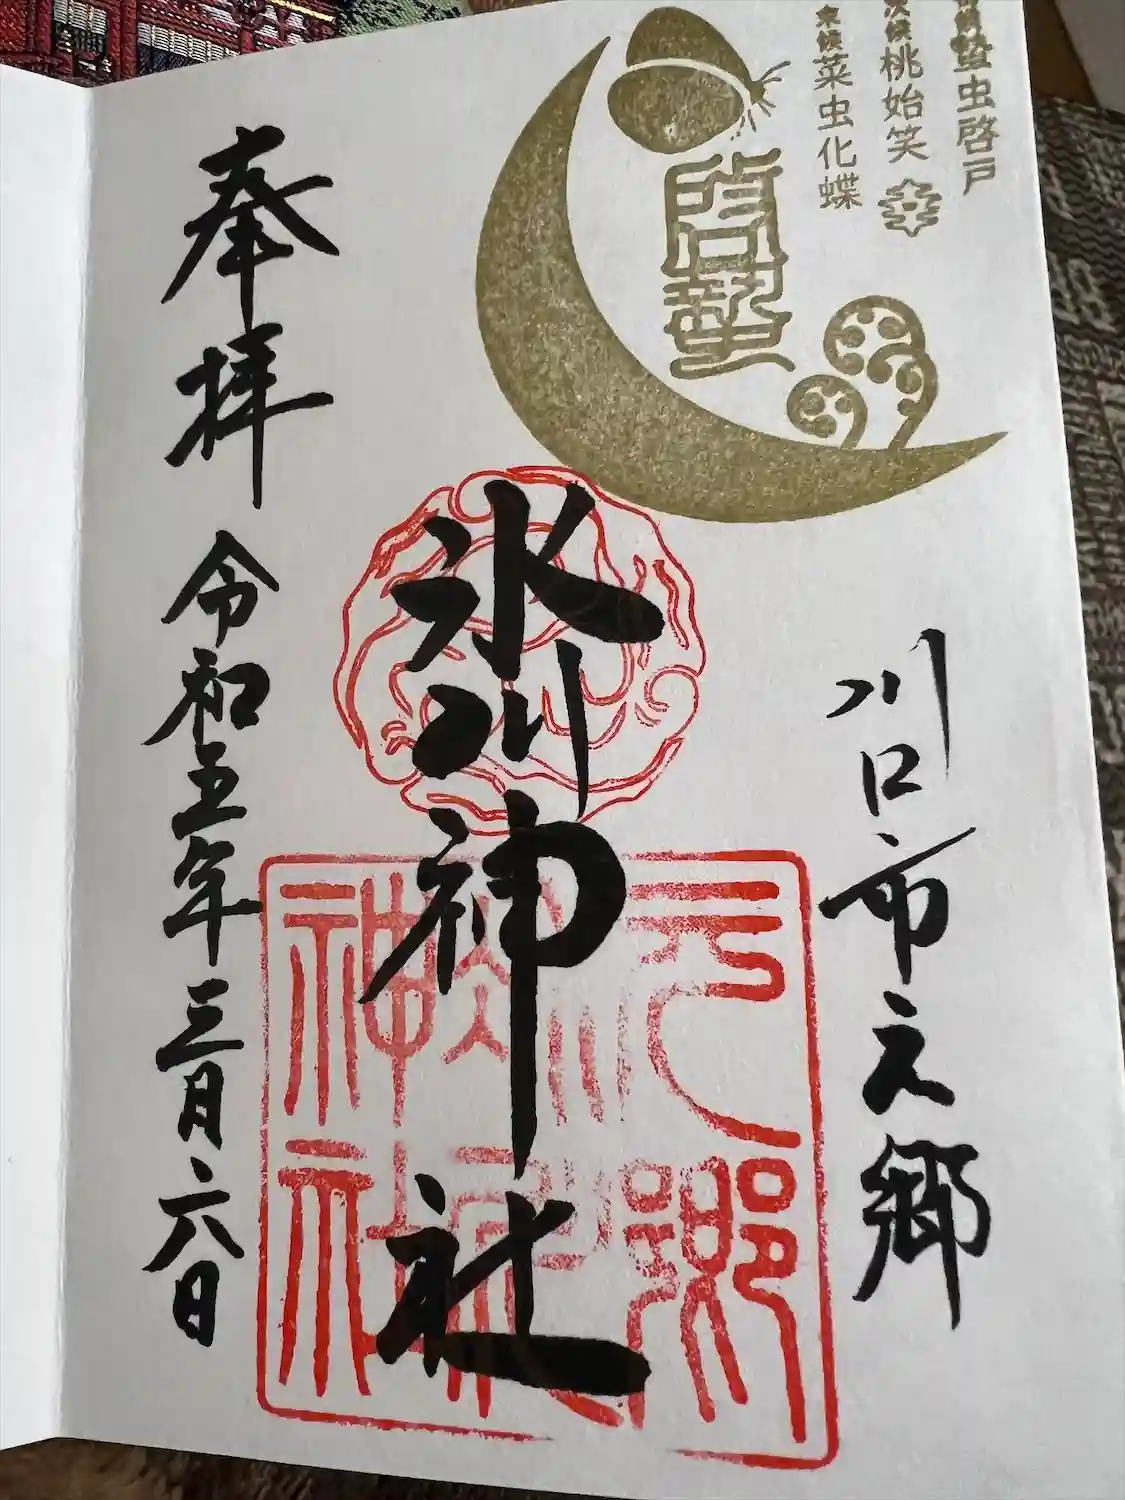 蟄虫啓戸
次候 桃始笑
末候 菜虫化蝶
啓蟄
川口市元郷
氷川神社
奉拝
令和五年三月六日